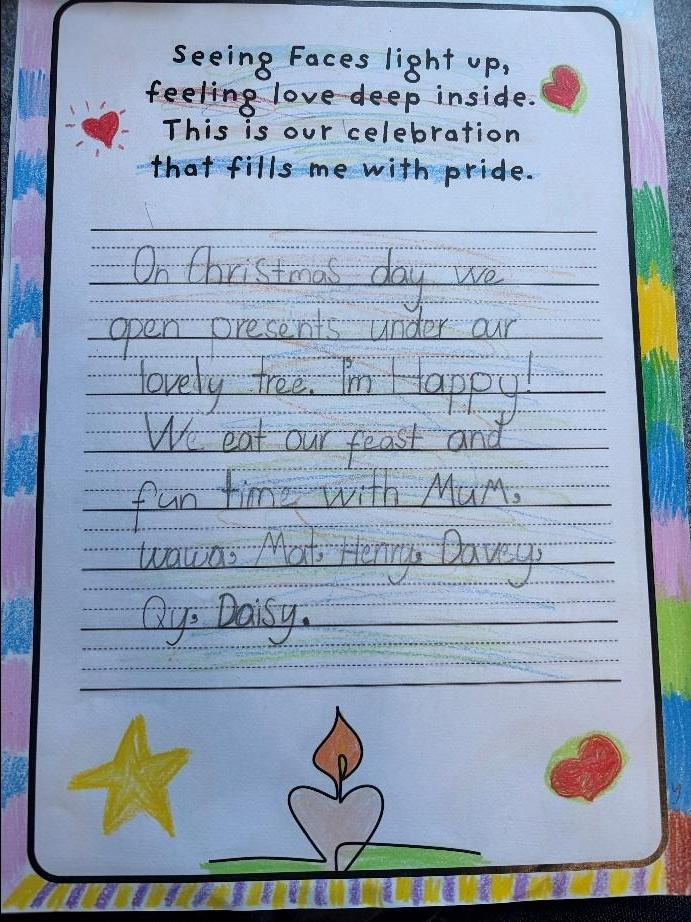 Seeing Faces light up,
feeling love deep inside.
This is our celebration
that fills me with pride.
On Christmas day we
open presents under our
lovely tree. I'm Happy!
We eat our feast and
fun time with MuM,
wawa, Mat, Henry, Davey,
Qy, Daisy.